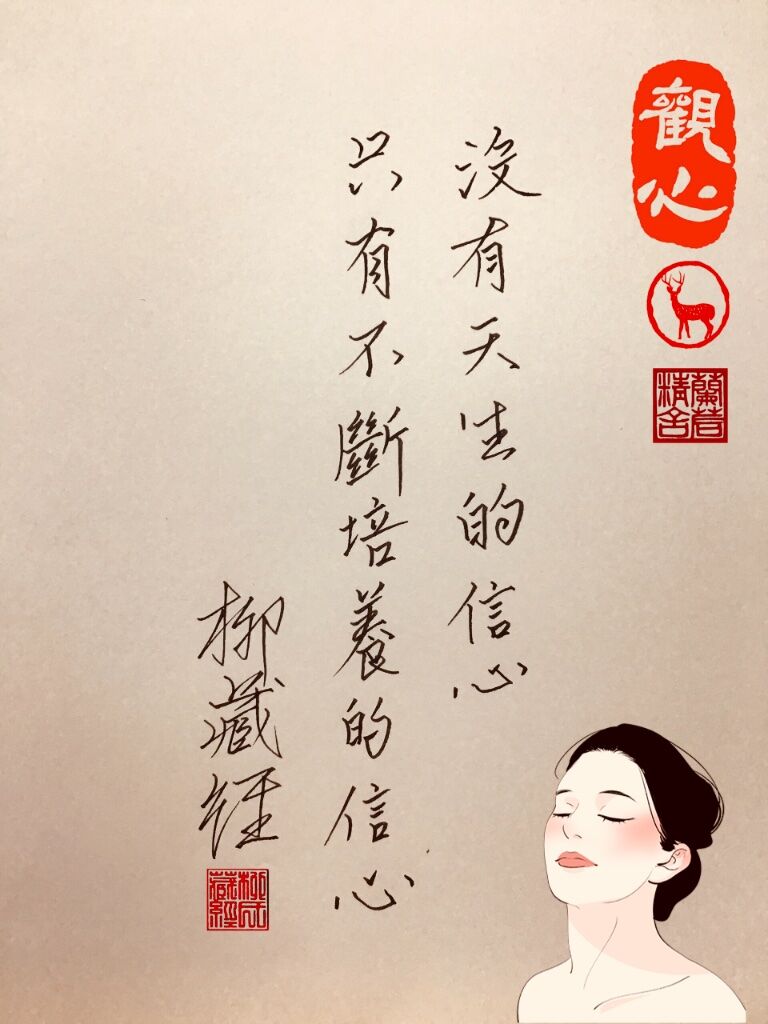 觀心
沒有天生的信心
只有不斷培養的信心
柳藏經
柳藏經